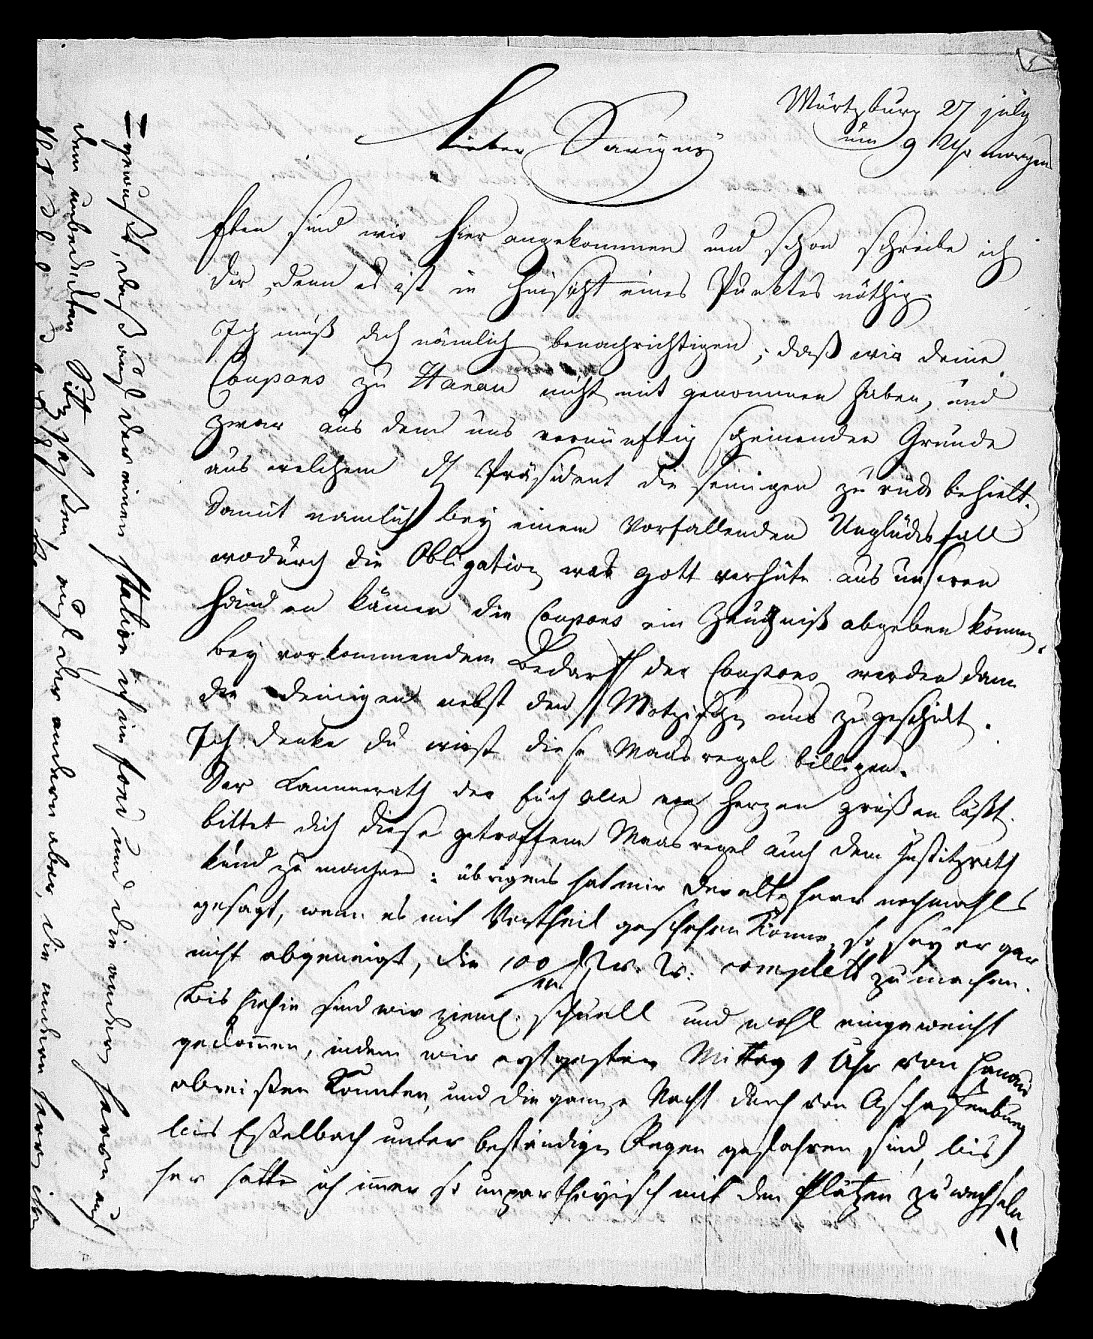 Würtzburg 27 july
um 9 Uhr morgen
Lieber Savigny
Eben sind wir hier angekommen und schon schreibe ich
dir, denn es ist in Hinsicht eines Punktes nöthig.
Ich muß dich nämlich benachrichtigen, daß wir deine
Coupons zu Hanau nicht mit genommen haben, und
zwar aus dem uns vernünftig scheinenden Grunde
aus welchem der Präsident die seinigen zurück behielt.
Damit nämlich bey einem vorfallenden Unglücksfall
wodurch die Obligation was gott verhüte aus unseren
Händen kämen die Coupons ein Zeugniß abgeben können,
bey vorkommendem Bedarf der Coupons werden dann
die deinigen nebst den uns zugeschickt.
Ich denke du wirst diese Maasregel billigen.
Der Cammerath der Euch alle von Herzen grüßen läßt.
bittet dich diese getroffene Maasregel auch dem Justitzrath
kund zu machen: übrigens hat mir der alte Herr nochmahls
gesagt, wenn es mit Vortheil geschehen könne, so sey er gar
nicht abgeneigt, die 100 complett zu machen.
Bis hiehin sind wir ziemL. schnell und wohl eingeweicht
gekommen, indem wir erst gestern Mittag 1 Uhr von Hanau
abreißen konnten, und die ganze Nacht durch von Aschaffenburg
bis Eßelbach unter beständigen Regen gefahren sind, bis
her hatte ich immer so unpartheyisch mit den Plätzen zu wechseln
gewußt, daß auf der einen Station ich im fond und die andern Herrn auf
dem unbedeckten Sitz saßen, auf der andern aber, die andern Herrn